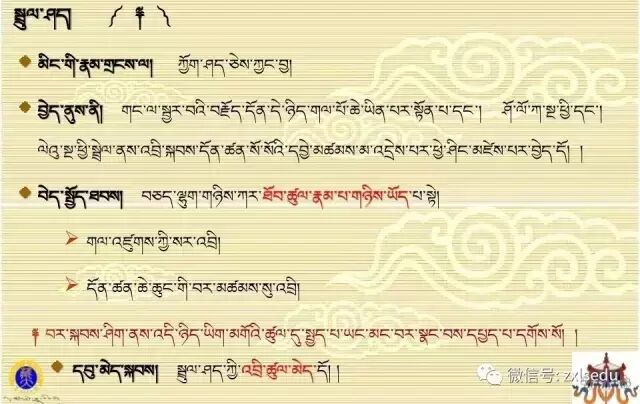 སྦྲུལ་ཤད། ༼ ༈ ༽
མིང་གི་རྣམ་གྲངས་ལ། ཀྱོག་ཤད་ཅེས་ཀྱང་བྱ།
བྱེད་ནུས་ནི། གང་ལ་སྦྱར་བའི་བརྗོད་དོན་དེ་ཉིད་གལ་པོ་ཆེ་ཡིན་པར་སྟོན་པ་དང་། ཤོ་ལོ་ཀ་སྔ་ཕྱི་དང་།
ལེའུ་སྔ་ཕྱི་སྦྲེལ་ནས་འབྲི་སྐབས་དོན་ཚན་སོ་སོའི་དབྱེ་མཚམས་མ་འདྲེས་པར་ཕྱེ་ཤིང་མཛེས་པར་བྱེད་དོ། །
བེད་སྤྱོད་ཐབས། བཅད་ལྷུག་གཉིས་ཀར་ཐོབ་ཚུལ་རྣམ་པ་གཉིས་ཡོད་པ་སྟེ།
གལ་འཛུགས་ཀྱི་སར་འབྲི།
དོན་ཚན་ཆེ་ཆུང་གི་བར་མཚམས་སུ་འབྲི།
༈ བར་སྐབས་ཤིག་ནས་འདི་ཉིད་ཡིག་མགོའི་ཚུལ་དུ་སྤྱད་པ་ཡང་མང་བར་སྣང་བས་དཔྱད་པ་དགོས་སོ། །
དབུ་མེད་སྐབས། སྦྲུལ་ཤད་ཀྱི་འབྲི་ཚུལ་མེད་དོ། །
微信号: zxlsedu